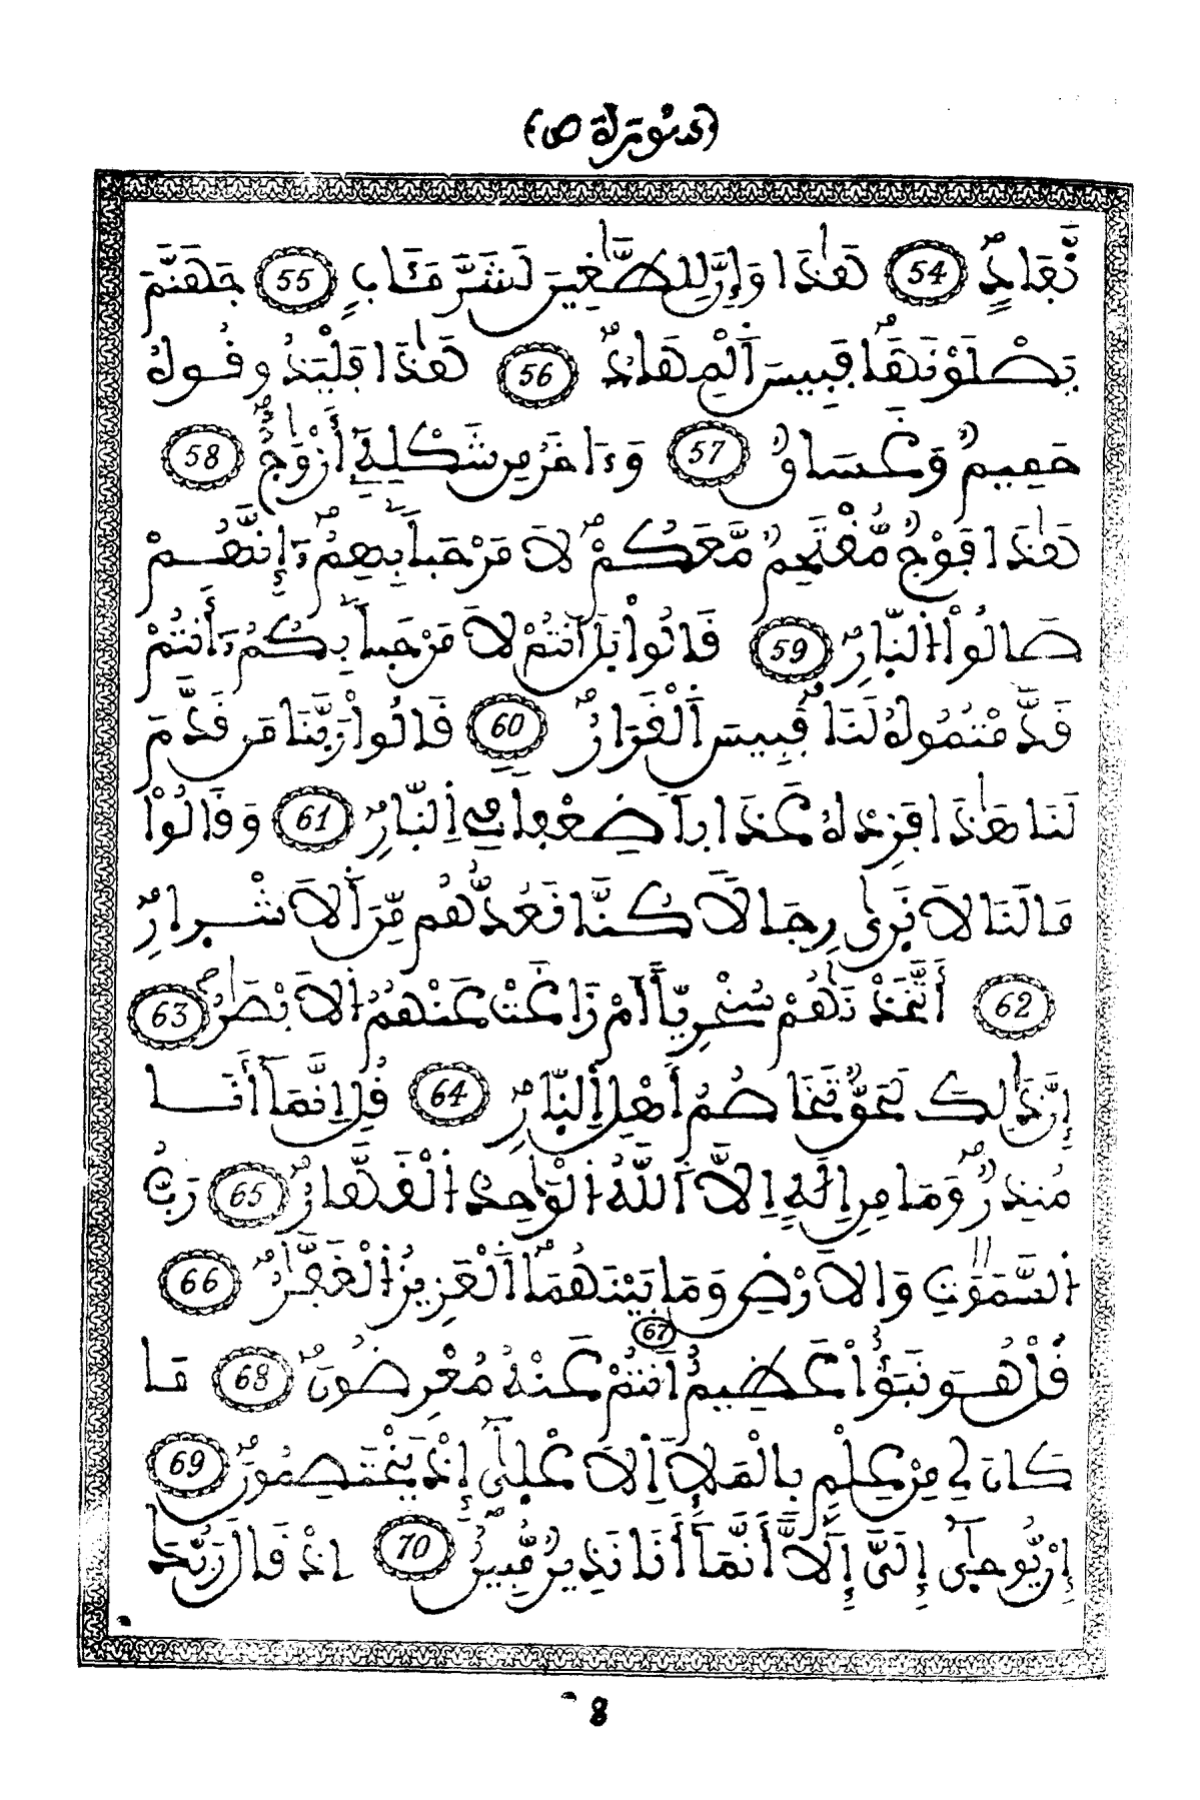 (سورة ص)
نَّفَادٍ 54 هَٰذَا وَإِنَّ لِلطَّٰغِينَ لَشَرَّ مَـَٔابٖ 55 جَهَنَّمَ
يَصْلَوْنَهَا فَبِيسَ اَ۬لْمِهَادُ 56 هَٰذَا فَلْيَذُوقُوهُ
حَمِيمٌ وَغَسَاقٌ 57 وَءَاخَرُ مِن شَكْلِهِۦٓ أَزْوَٰجٌ 58
هَٰذَا فَوْجٌ مُّقْتَحِمٌ مَّعَكُمْ لَا مَرْحَباَۢ بِهِمُۥٓ إِنَّهُمْ
صَالُواْ اُ۬لنَّارِ 59 قَالُواْ بَلَ اَنتُمْ لَا مَرْحَباَۢ بِكُمُۥٓ أَنتُمْ
قَدَّمْتُمُوهُ لَنَا فَبِيسَ اَ۬لْقَرَارُ 60 قَالُواْ رَبَّنَا مَن قَدَّمَ
لَنَا هَٰذَا فَزِدْهُ عَذَاباٗ ضِعْفاٗ فِے اِ۬لنَّارِ 61 وَقَالُواْ
مَا لَنَا لَا نَرَىٰ رِجَالاٗ كُنَّا نَعُدُّهُم مِّنَ اَ۬لَاشْرارِ
62 أَتَّخَذْنَٰهُمْ سُخْرِيّاً أَمْ زَاغَتْ عَنْهُمُ اُ۬لَابْصَٰرُ 63
إِنَّ ذَٰلِكَ لَحَقٌّ تَخَاصُمُ أَهْلِ اِ۬لنَّارِ 64 قُلِ اِنَّمَآ أَنَا
مُنذِرٌ وَمَا مِنِ اِلَٰهٍ اِلَّا اَ۬للَّهُ اُ۬لْوَٰحِدُ اُ۬لْقَهَّارُ 65 رَبُّ
اُ۬لسَّمَٰوَٰتِ وَالَارْضِ وَمَا بَيْنَهُمَا اَ۬لْعَزِيزُ اُ۬لْغَفَّٰرُ 66
قُلْ هُوَ نَبَؤٌاْ عَظِيمٌ 67 اَنتُمْ عَنْهُ مُعْرِضُونَ 68 مَا
كَانَ لِے مِنْ عِلْمِۢ بِالْمَلَإِ اِ۬لَاعْلَىٰٓ إِذْ يَخْتَصِمُونَ 69
إِنْ يُّوحَىٰٓ إِلَىَّ إِلَّآ أَنَّمَآ أَنَا نَذِيرٌ مُّبِينٌ 70 اِذْ قَالَ رَبُّكَ
8